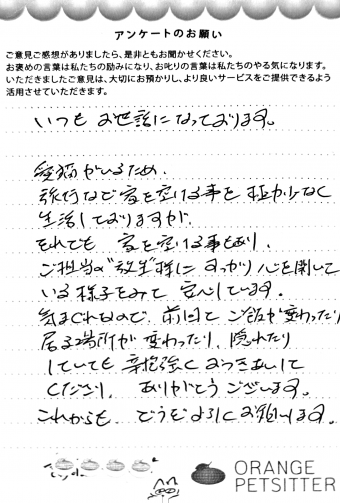 アンケートのお願い
ご意見ご感想がありましたら、是非ともお聞かせください。
お褒めの言葉は私たちの励みになり、お叱りの言葉は私たちのやる気になります。
いただきましたご意見は、大切にお預かりし、より良いサービスをご提供できるよう
活用させていただきます。
いつも お世話になっております。
愛猫がいるため、
旅行などで家を空ける事を極力なく
生活しておりますが、
それでも 家を空ける事もあり、
ご担当の 様に すっかり心を開いて
いる様子をみて 安心しています。
気まぐれなので、前回と ご飯が変わったり
居る場所が 変わったり、隠れたり
していても 辛抱強く おつきあいして
くださり、ありがとうございます。
これからも、どうぞよろしくお願いします。
ORANGE
PETSITTER